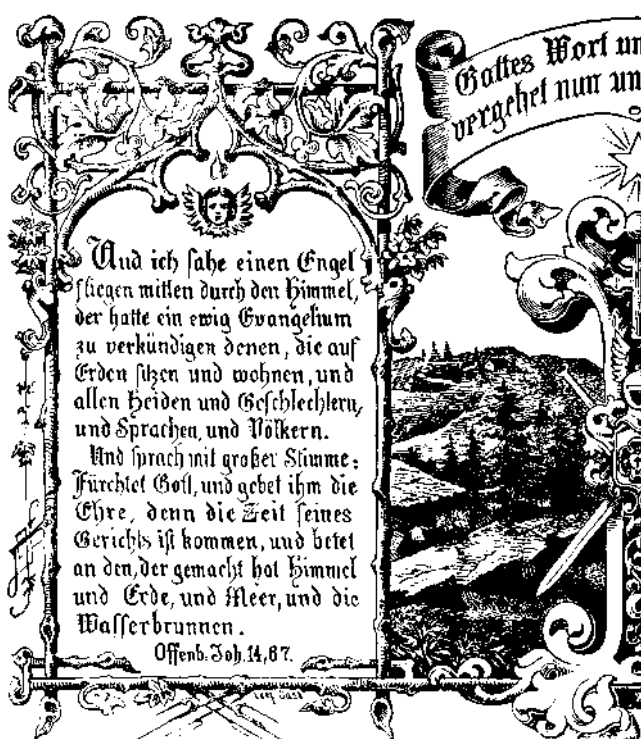 Und ich sahe einen Engel
fliegen mitten durch den Himmel,
der hatte ein ewig Evangelium
zu verkündigen denen, die auf
Erden sitzen und wohnen, und
allen Heiden und Geschlechtern,
und Sprachen, und Völkern.
Und sprach mit großer Stimme:
Fürchtet Gott, und gebet ihm die
Ehre, denn die Zeit seines
Gerichts ist kommen, und betet
an den, der gemacht hat Himmel
und Erde, und Meer, und die
Wasserbrunnen.
Offenb. Joh. 14,67.
Gottes Wort
vergehet nun